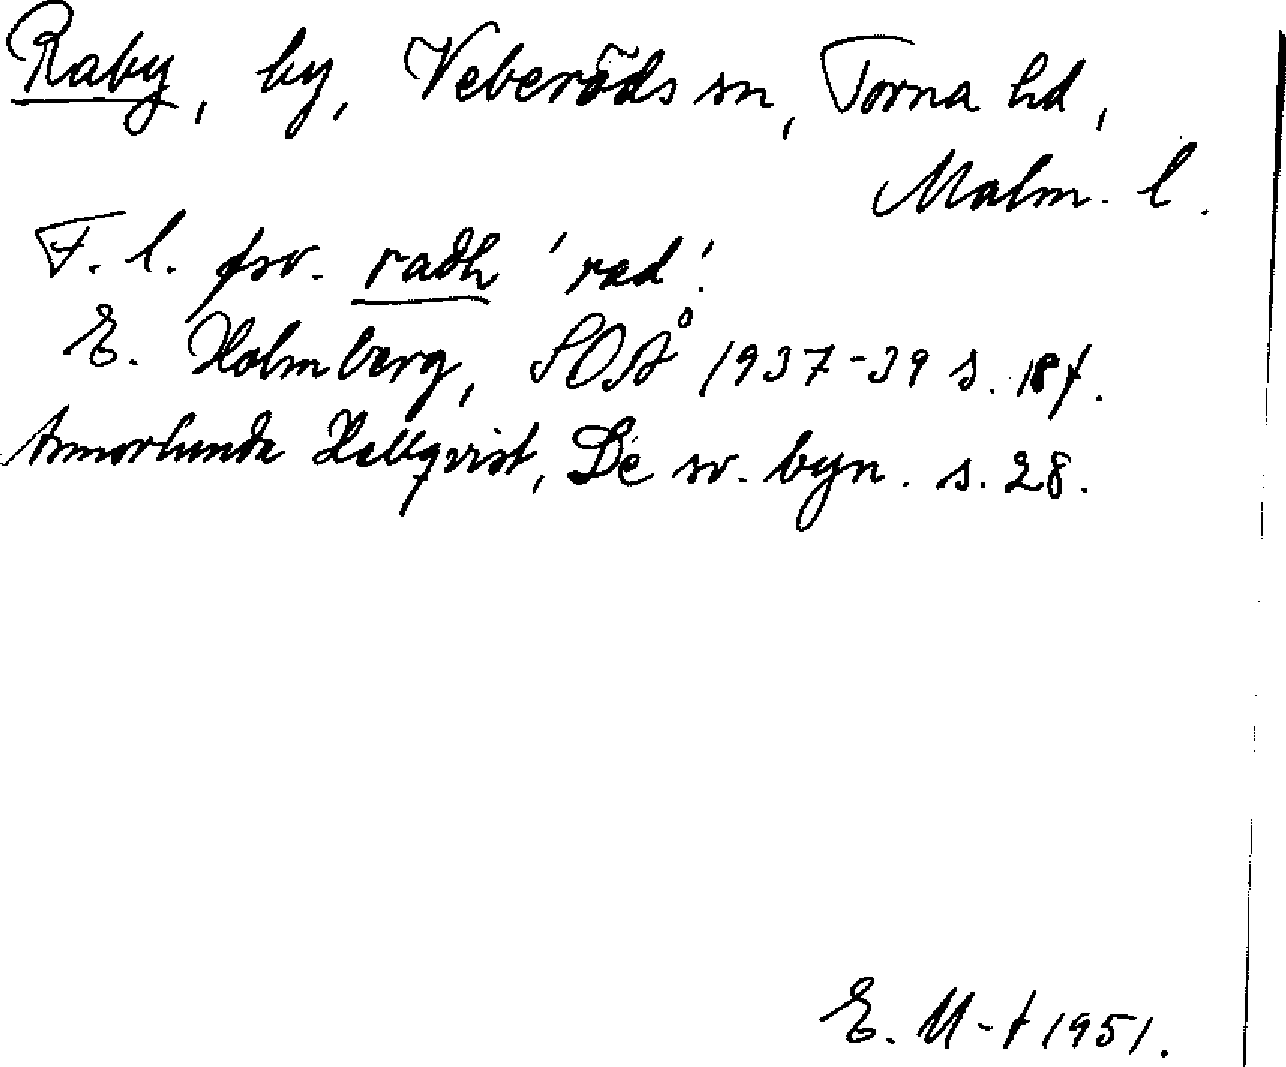 Raby, by, Veberöds sn, Torna hd,
Malm. l.
F. l. fsv. radh 'rad'.
E. Holmberg, SOÅ 1937-39 s. 18f.
Annorlunda Hellqvist, De sv. byn. s. 28.
E. M-t 1951.